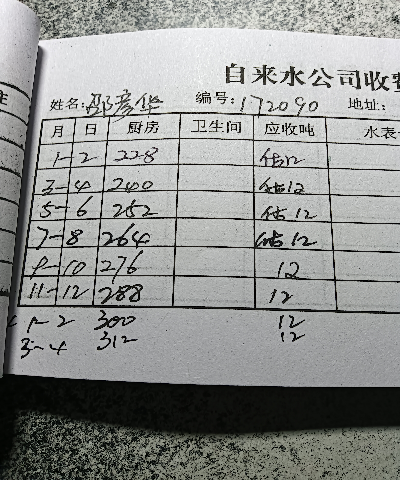 自来水公司收
姓名: 邵彦华 编号: 172090 地址:
月 日 厨房 卫生间 应收吨 水表
1-2 228 估12
3-4 240 估12
5-6 252 估12
7-8 264 估12
9-10 276 12
11-12 288 12
1-2 300 12
3-4 312 12